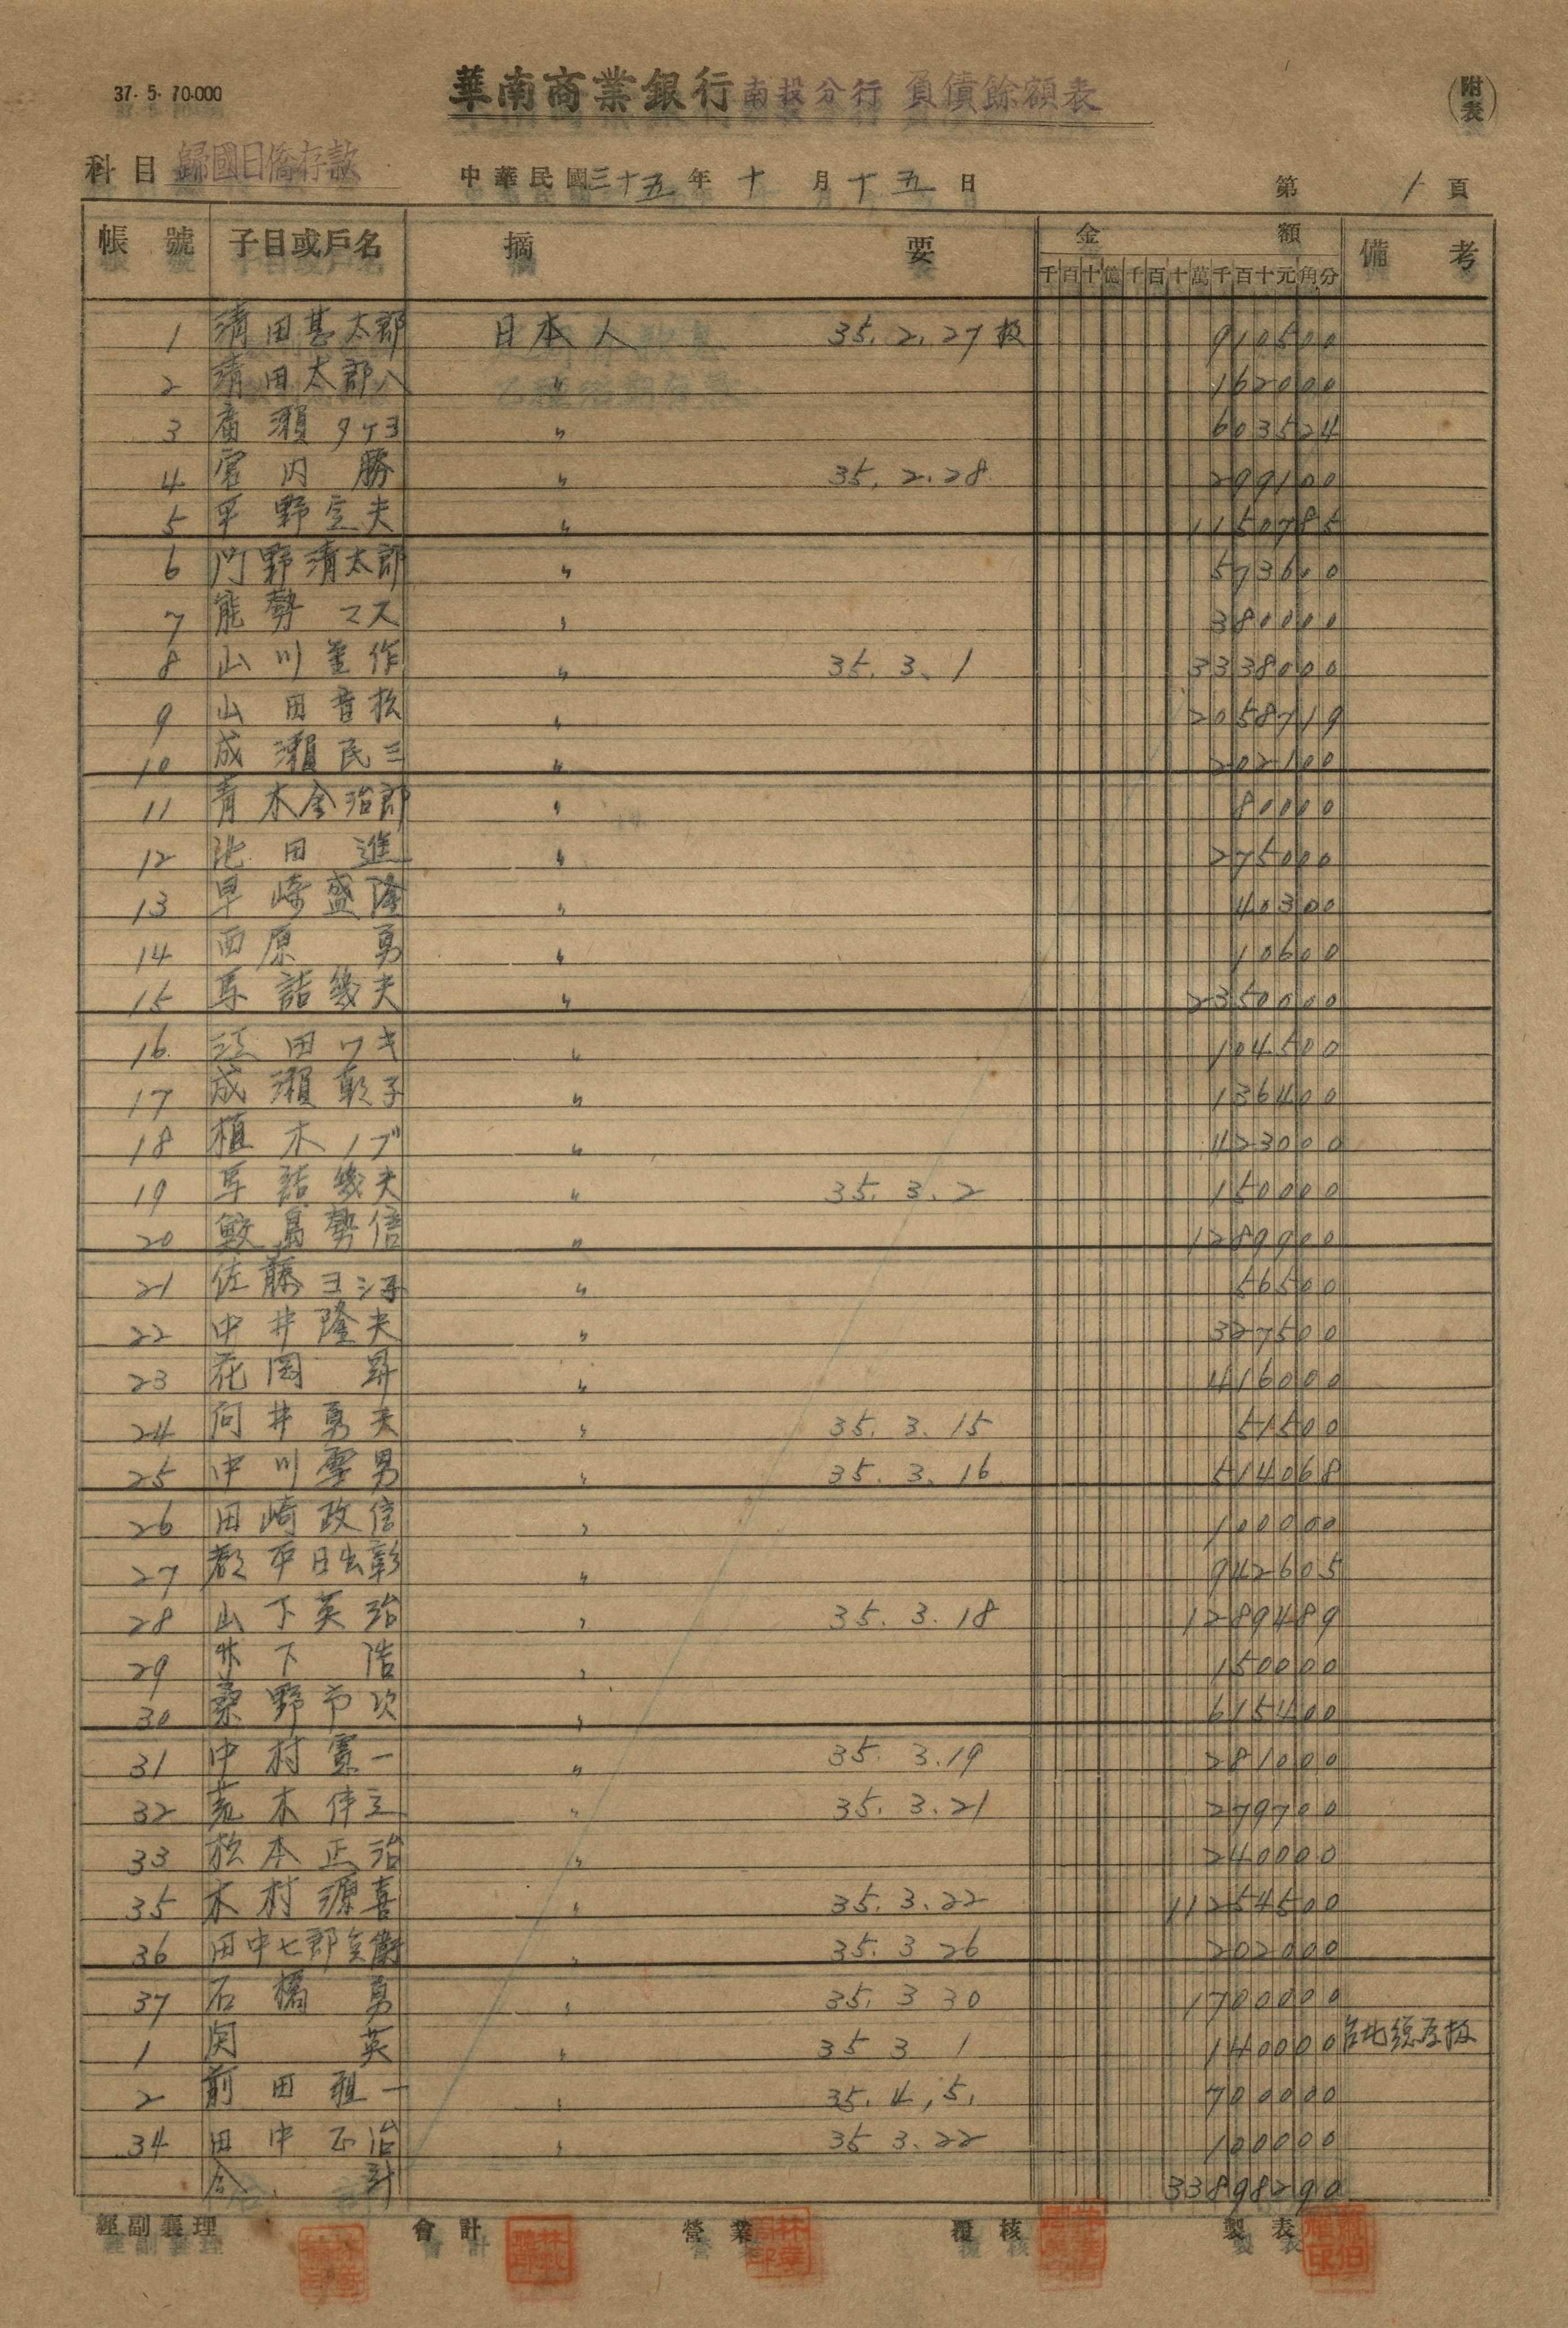 37. 5. 10.000
華南商業銀行南投分行 負債餘額表
(附表)
科目 歸國日僑存款 中華民國三十五年十月十五日 第 1 頁
帳號 子目或戶名 摘要 金額 備考
千百十億千百十萬千百十元角分
1 清田甚太郎 日本人 35.2.27 扱 910500
2 靖田太郎八 〃 162000
3 廣瀨タケヨ 〃 603524
4 宮内勝 〃 35.2.28 299100
5 平野定夫 〃 1150785
6 門野清太郎 〃 573600
7 能勢マス 〃 380000
8 山川釜作 〃 35.3.1 3338000
9 山田音松 〃 2058719
10 成瀨民三 〃 202100
11 青木金治郎 〃 80000
12 池田進 〃 275000
13 早崎盛隆 〃 40300
14 西原勇 〃 10600
15 幾夫 〃 2350000
16 江田ワキ 〃 104500
17 成瀨 子 〃 136400
18 植木ノブ 〃 423000
19 幾夫 〃 35.3.2 150000
20 鮫島勢信 〃 1289900
21 佐藤ヨシ子 〃 56500
22 中井隆夫 〃 327500
23 花岡昇 〃 416000
24 向井勇夫 〃 35.3.15 51500
25 中川 男 〃 35.3.16 514068
26 田崎政信 〃 100000
27 平日出彰 〃 942605
28 山下英治 〃 35.3.18 1289489
29 下浩 〃 150000
30 桑野市次 〃 615400
31 中村寛一 〃 35.3.19 281000
32 荒木 〃 35.3.21 279700
33 松本正治 〃 240000
35 木村源喜 〃 35.3.22 11254500
36 田中七郎兵衛 〃 35.3 26 202000
37 石橋勇 〃 35.3 30 1700000
1 関英 〃 35 3 1 140000 台北總店扱
2 前田雅一 〃 35.4.5. 700000
34 田中正治 〃 35 3.22 100000
合計 33898290
經副襄理 會計 營業 覆核 製表